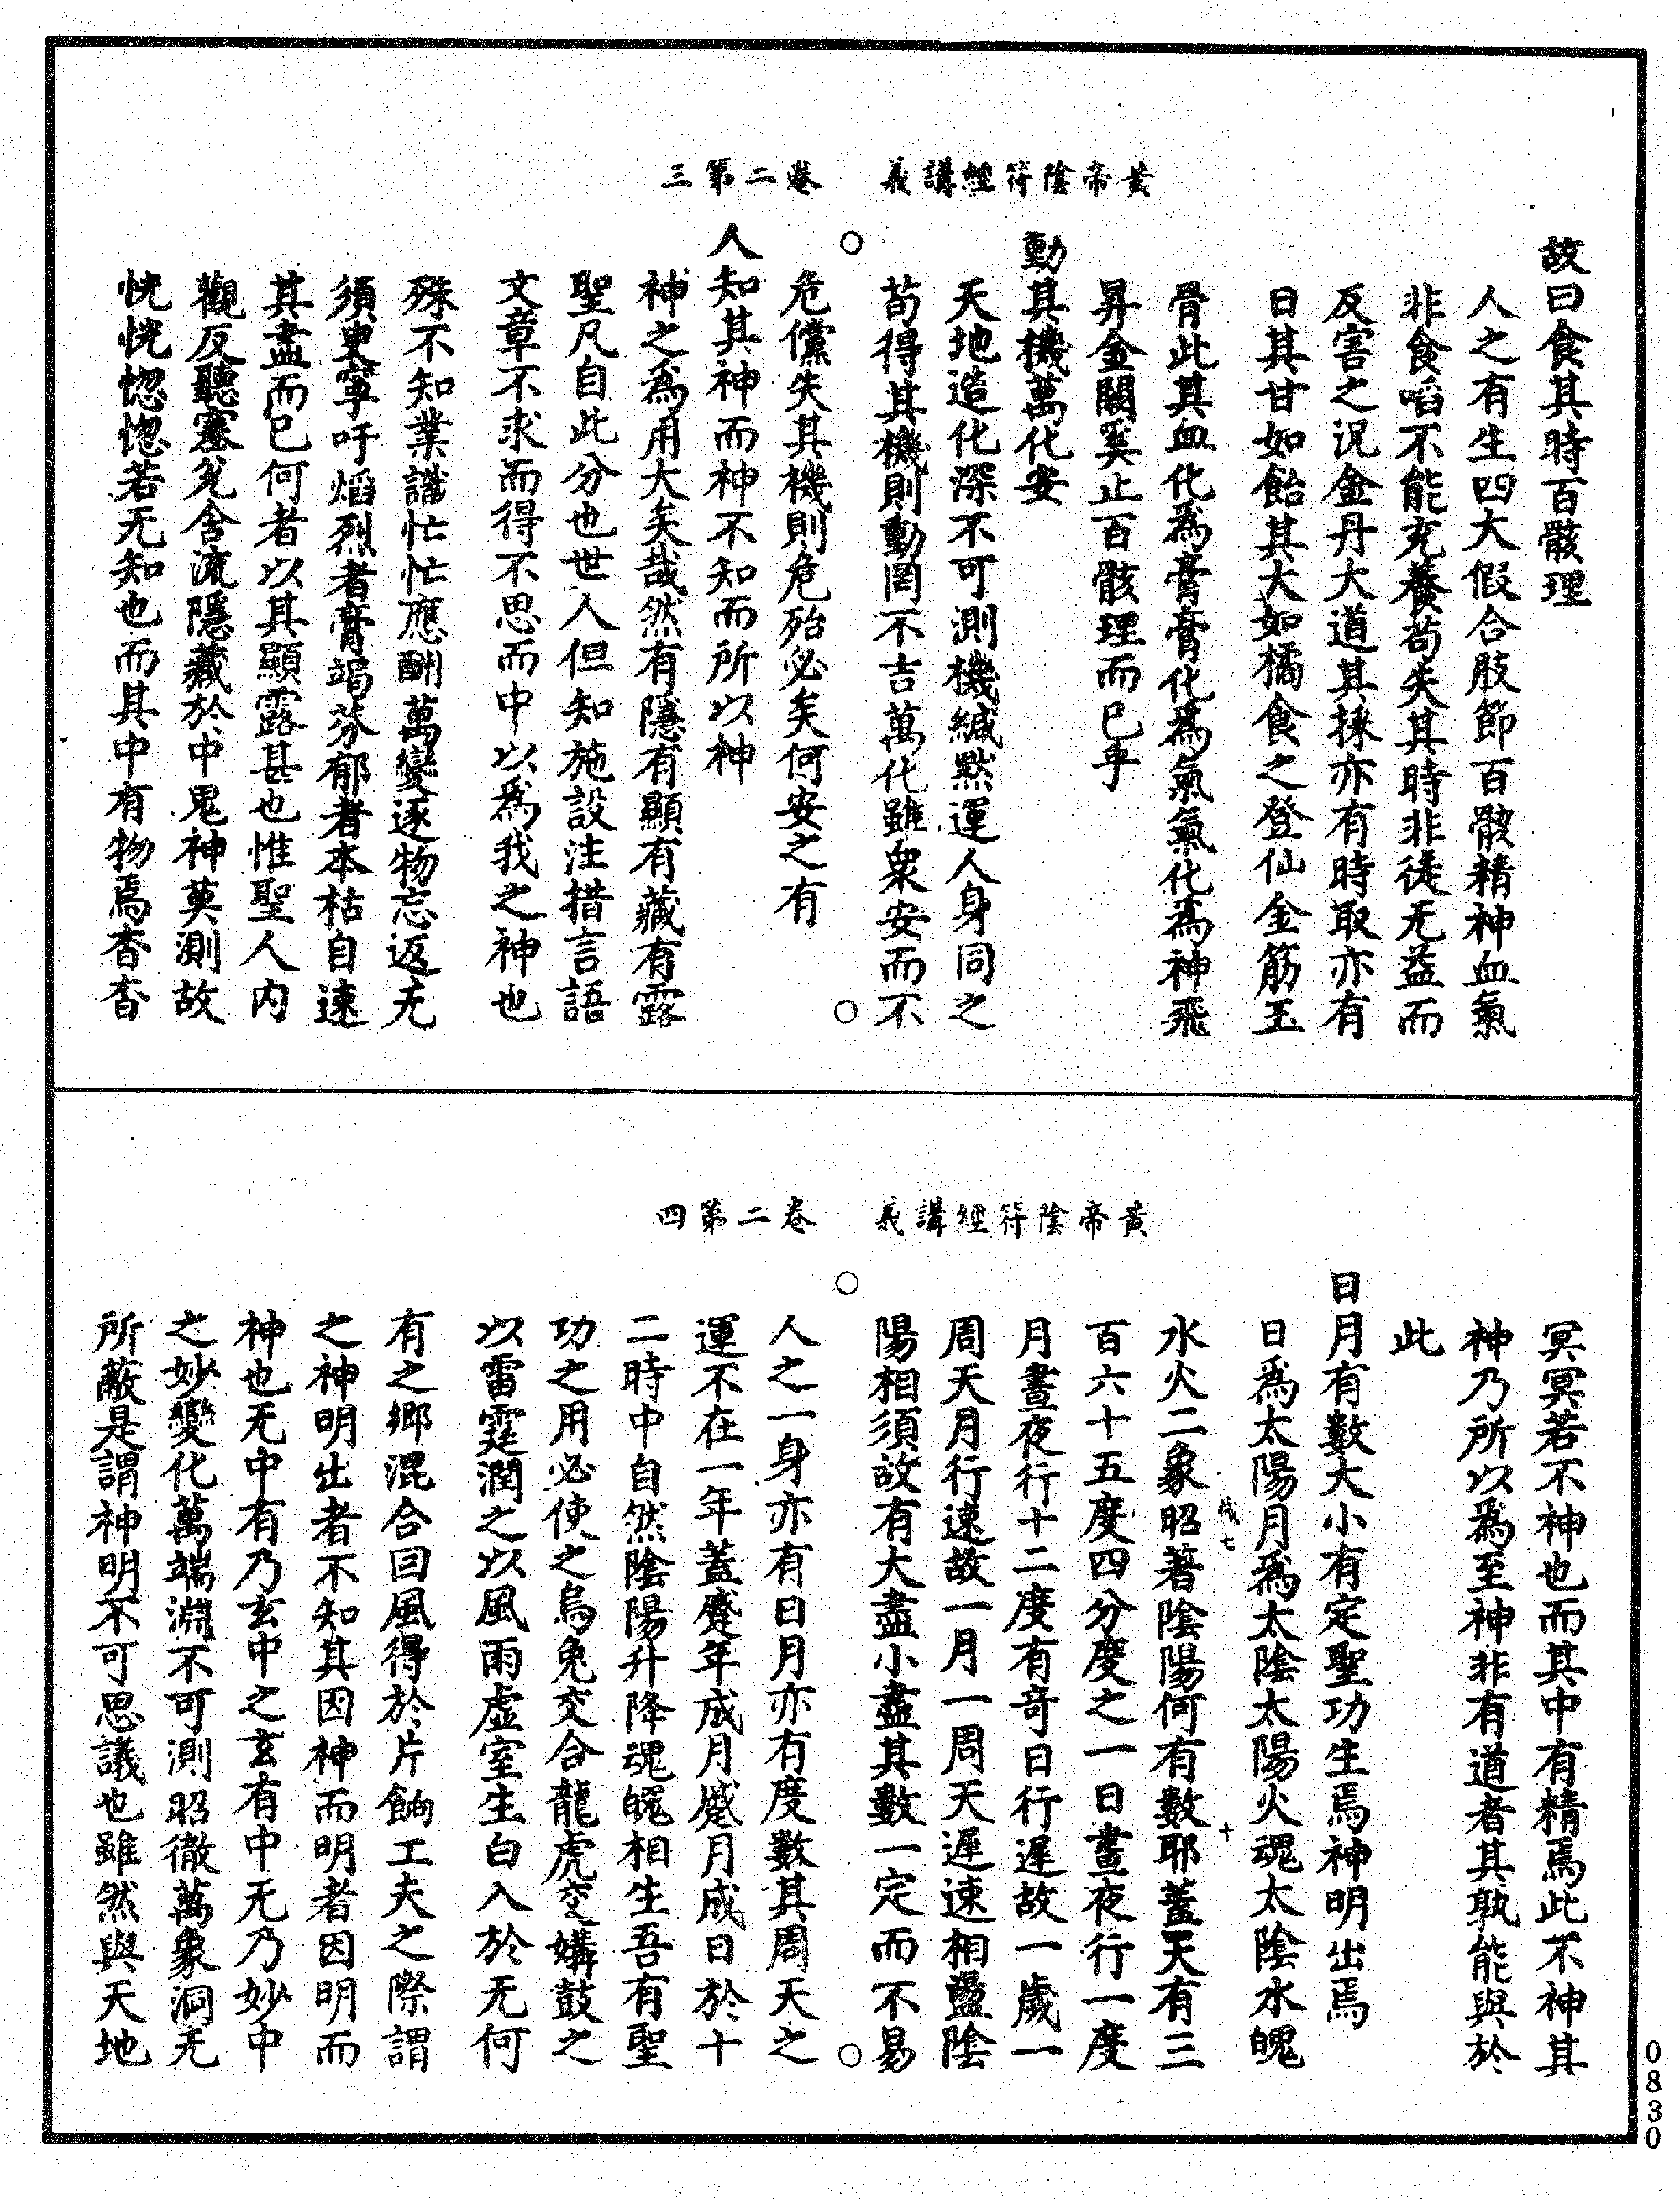 黃帝陰符經講義　卷二第三
故曰食其時百骸理
人之有生四大假合肢節百骸精神血氣
非食啗不能充養苟失其時非徒无益而
反害之況金丹大道其採亦有時取亦有
日其甘如飴其大如橘食之登仙金筋玉
骨此其血化為膏膏化為氣氣化為神飛
昇金闕奚止百骸理而已乎
動其機萬化安
天地造化深不可測機緘默運人身同之
苟得其機則動罔不吉萬化雖衆安而不
危儻失其機則危殆必矣何安之有
人知其神而神不知而所以神
神之為用大矣哉然有隱有顯有藏有露
聖凡自此分也世人但知施設注措言語
文章不求而得不思而中以為我之神也
殊不知業識忙忙應酬萬變逐物忘返尤
須臾寧吁焰烈者膏竭芬郁者本枯自速
其盡而已何者以其顯露甚也惟聖人內
觀反聽塞兊含流隱藏於中鬼神莫測故
恍恍惚惚若无知也而其中有物焉杳杳
黃帝陰符經講義　卷二第四
冥冥若不神也而其中有精焉此不神其
神乃所以為至神非有道者其孰能與於
此
日月有數大小有定聖功生焉神明出焉
日為太陽月為太陰太陽火魂太陰水魄
水火二象昭著陰陽何有數耶蓋天有三
百六十五度四分度之一日晝夜行一度
月晝夜行十二度有奇日行遲故一歲一
周天月行速故一月一周天遲速相盪陰
陽相須故有大盡小盡其數一定而不易
人之一身亦有日月亦有度數其周天之
運不在一年蓋蹙年成月蹙月成日於十
二時中自然陰陽升降魂魄相生吾有聖
功之用必使之烏兔交合龍虎交媾鼓之
以雷霆潤之以風雨虛室生白入於无何
有之鄉混合回風得於片餉工夫之際謂
之神明出者不知其因神而明者因明而
神也无中有乃玄中之玄有中无乃妙中
之妙變化萬端淵不可測昭徹萬象洞无
所蔽是謂神明不可思議也雖然與天地
0830